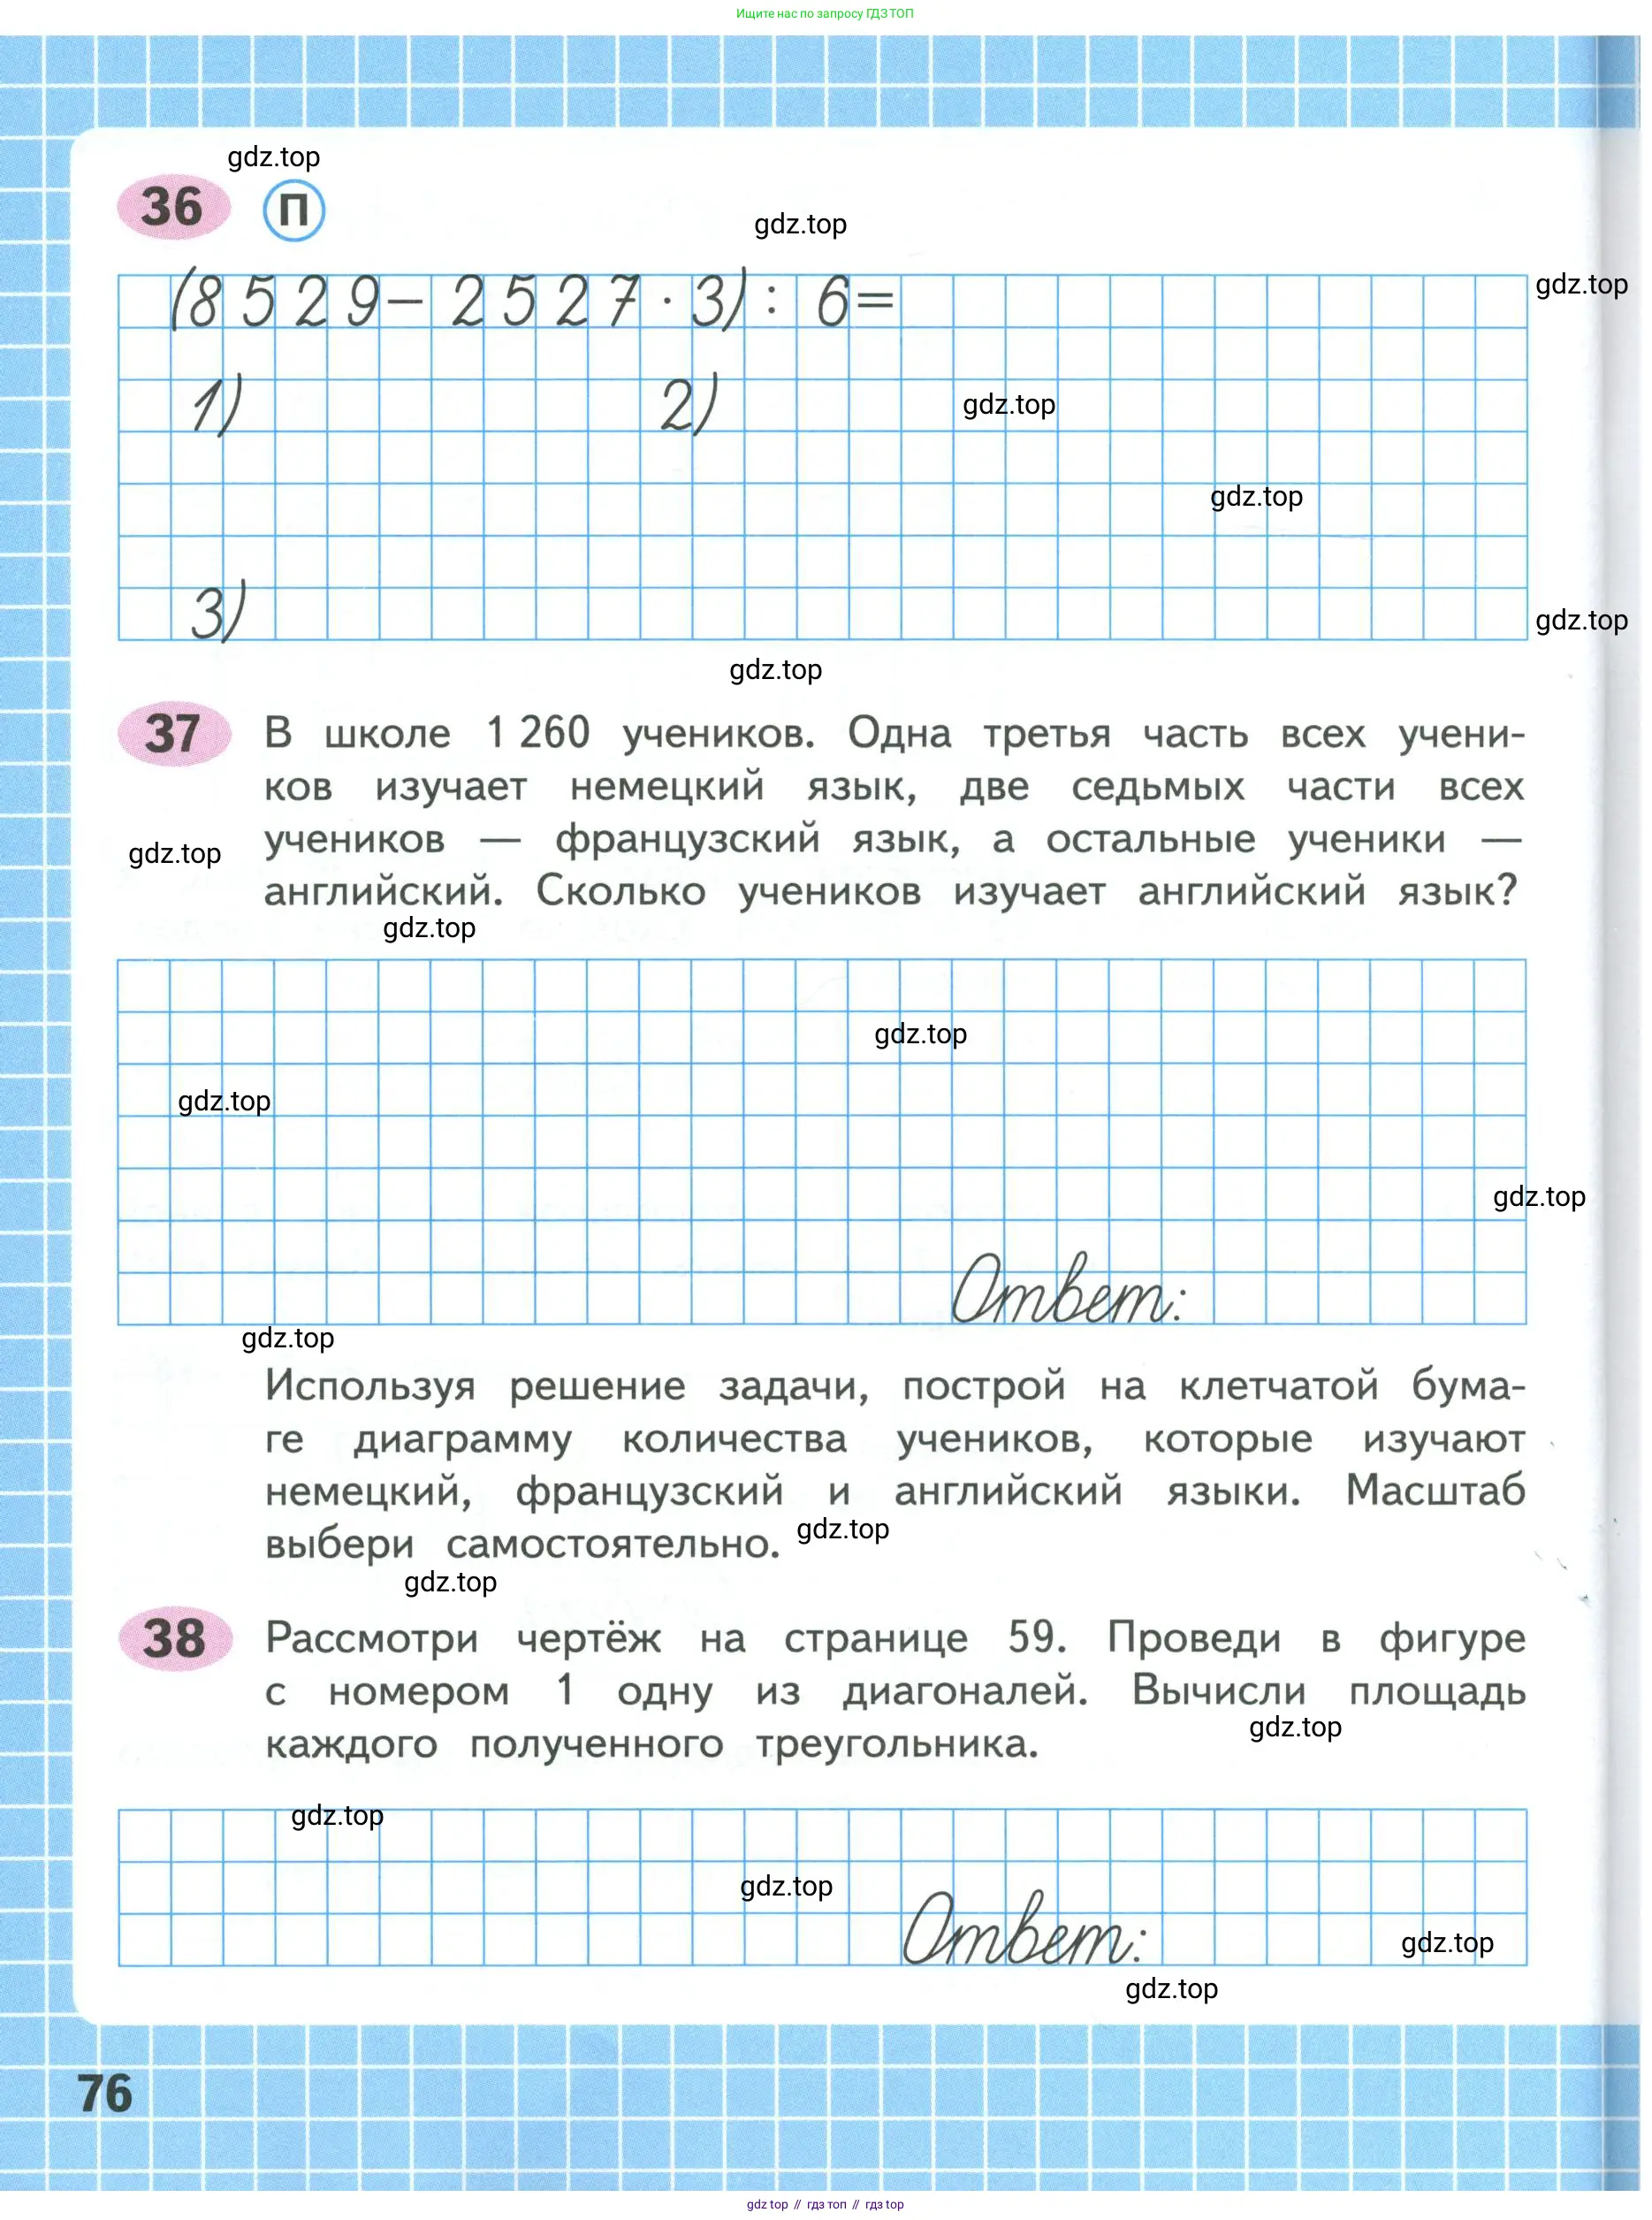 Ищите нас по запросу ГДЗ ТОП
gdz.top
36 П
gdz.top
(8529-2527·3):6=
gdz.top
1) 2)
gdz.top
gdz.top
3)
gdz.top
gdz.top
37 В школе 1 260 учеников. Одна третья часть всех учени-
ков изучает немецкий язык, две седьмых части всех
учеников — французский язык, а остальные ученики —
gdz.top
английский. Сколько учеников изучает английский язык?
gdz.top
gdz.top
gdz.top
gdz.top
Ответ:
gdz.top
Используя решение задачи, построй на клетчатой бума-
ге диаграмму количества учеников, которые изучают
немецкий, французский и английский языки. Масштаб
выбери самостоятельно.
gdz.top
gdz.top
38 Рассмотри чертёж на странице 59. Проведи в фигуре
с номером 1 одну из диагоналей. Вычисли площадь
каждого полученного треугольника.
gdz.top
gdz.top
gdz.top
Ответ:
gdz.top
gdz.top
76
gdz top // гдз топ // гдз top